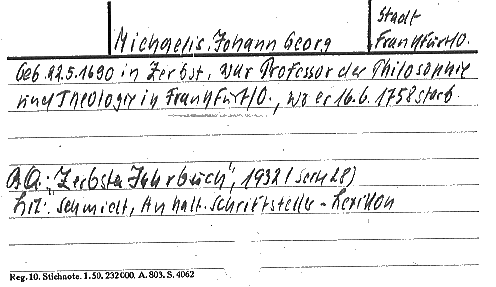 Stadt
Michaelis, Johann Georg Frankfurt/O.
Geb. 22.5.1690 in Zerbst, war Professor der Philosophie
und Theologie in Frankfurt/O., wo er 16.6.1758 starb.
"Zerbster Jahrbuch", 1932 (Seite 28)
Lit: Schmidt, Anhalt. Schriftsteller-Lexikon
Reg. 10. Stichnote. 1. 50. 232000. A. 803. S. 4062